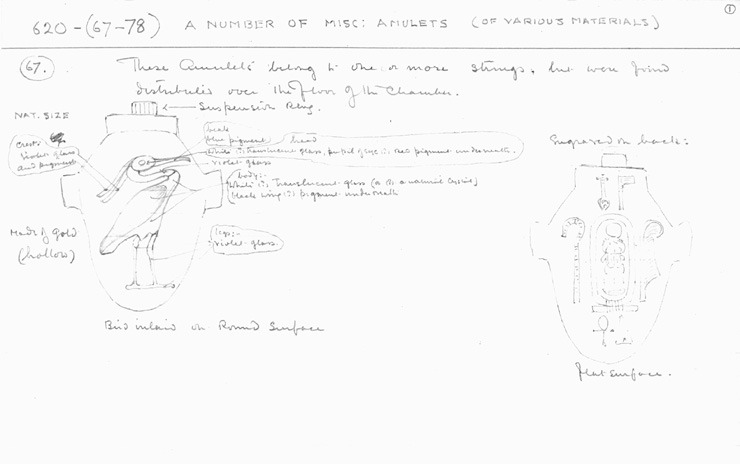 ①
620-(67-78) A NUMBER OF MISC: AMULETS (OF VARIOUS MATERIALS)
67. These Amulets belong to one or more strings, but were found
distributed over the floor of the Chamber.
NAT. SIZE
Suspension Ring.
crest:-
violet glass
and pigment
beak
blue pigment
head
white :: translucent glass, pupil of eye :: red pigment underneath.
violet glass
body:-
white :: Translucent glass (or
black wing :: pigment underneath
legs:-
violet glass.
Made of gold
(hollow)
Bird inlaid on Round Surface
Engraved on back:
flat surface.